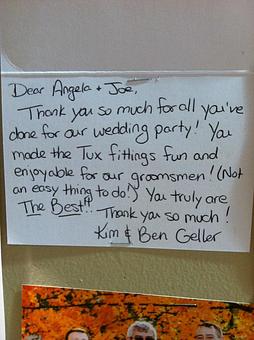 Dear Angela + Joe,
Thank you so much for all you've
done for our wedding party! You
made the Tux fittings fun and
enjoyable for our groomsmen! (Not
an easy thing to do!) You truly are
The Best!! Thank you so much!
Kim & Ben Geller